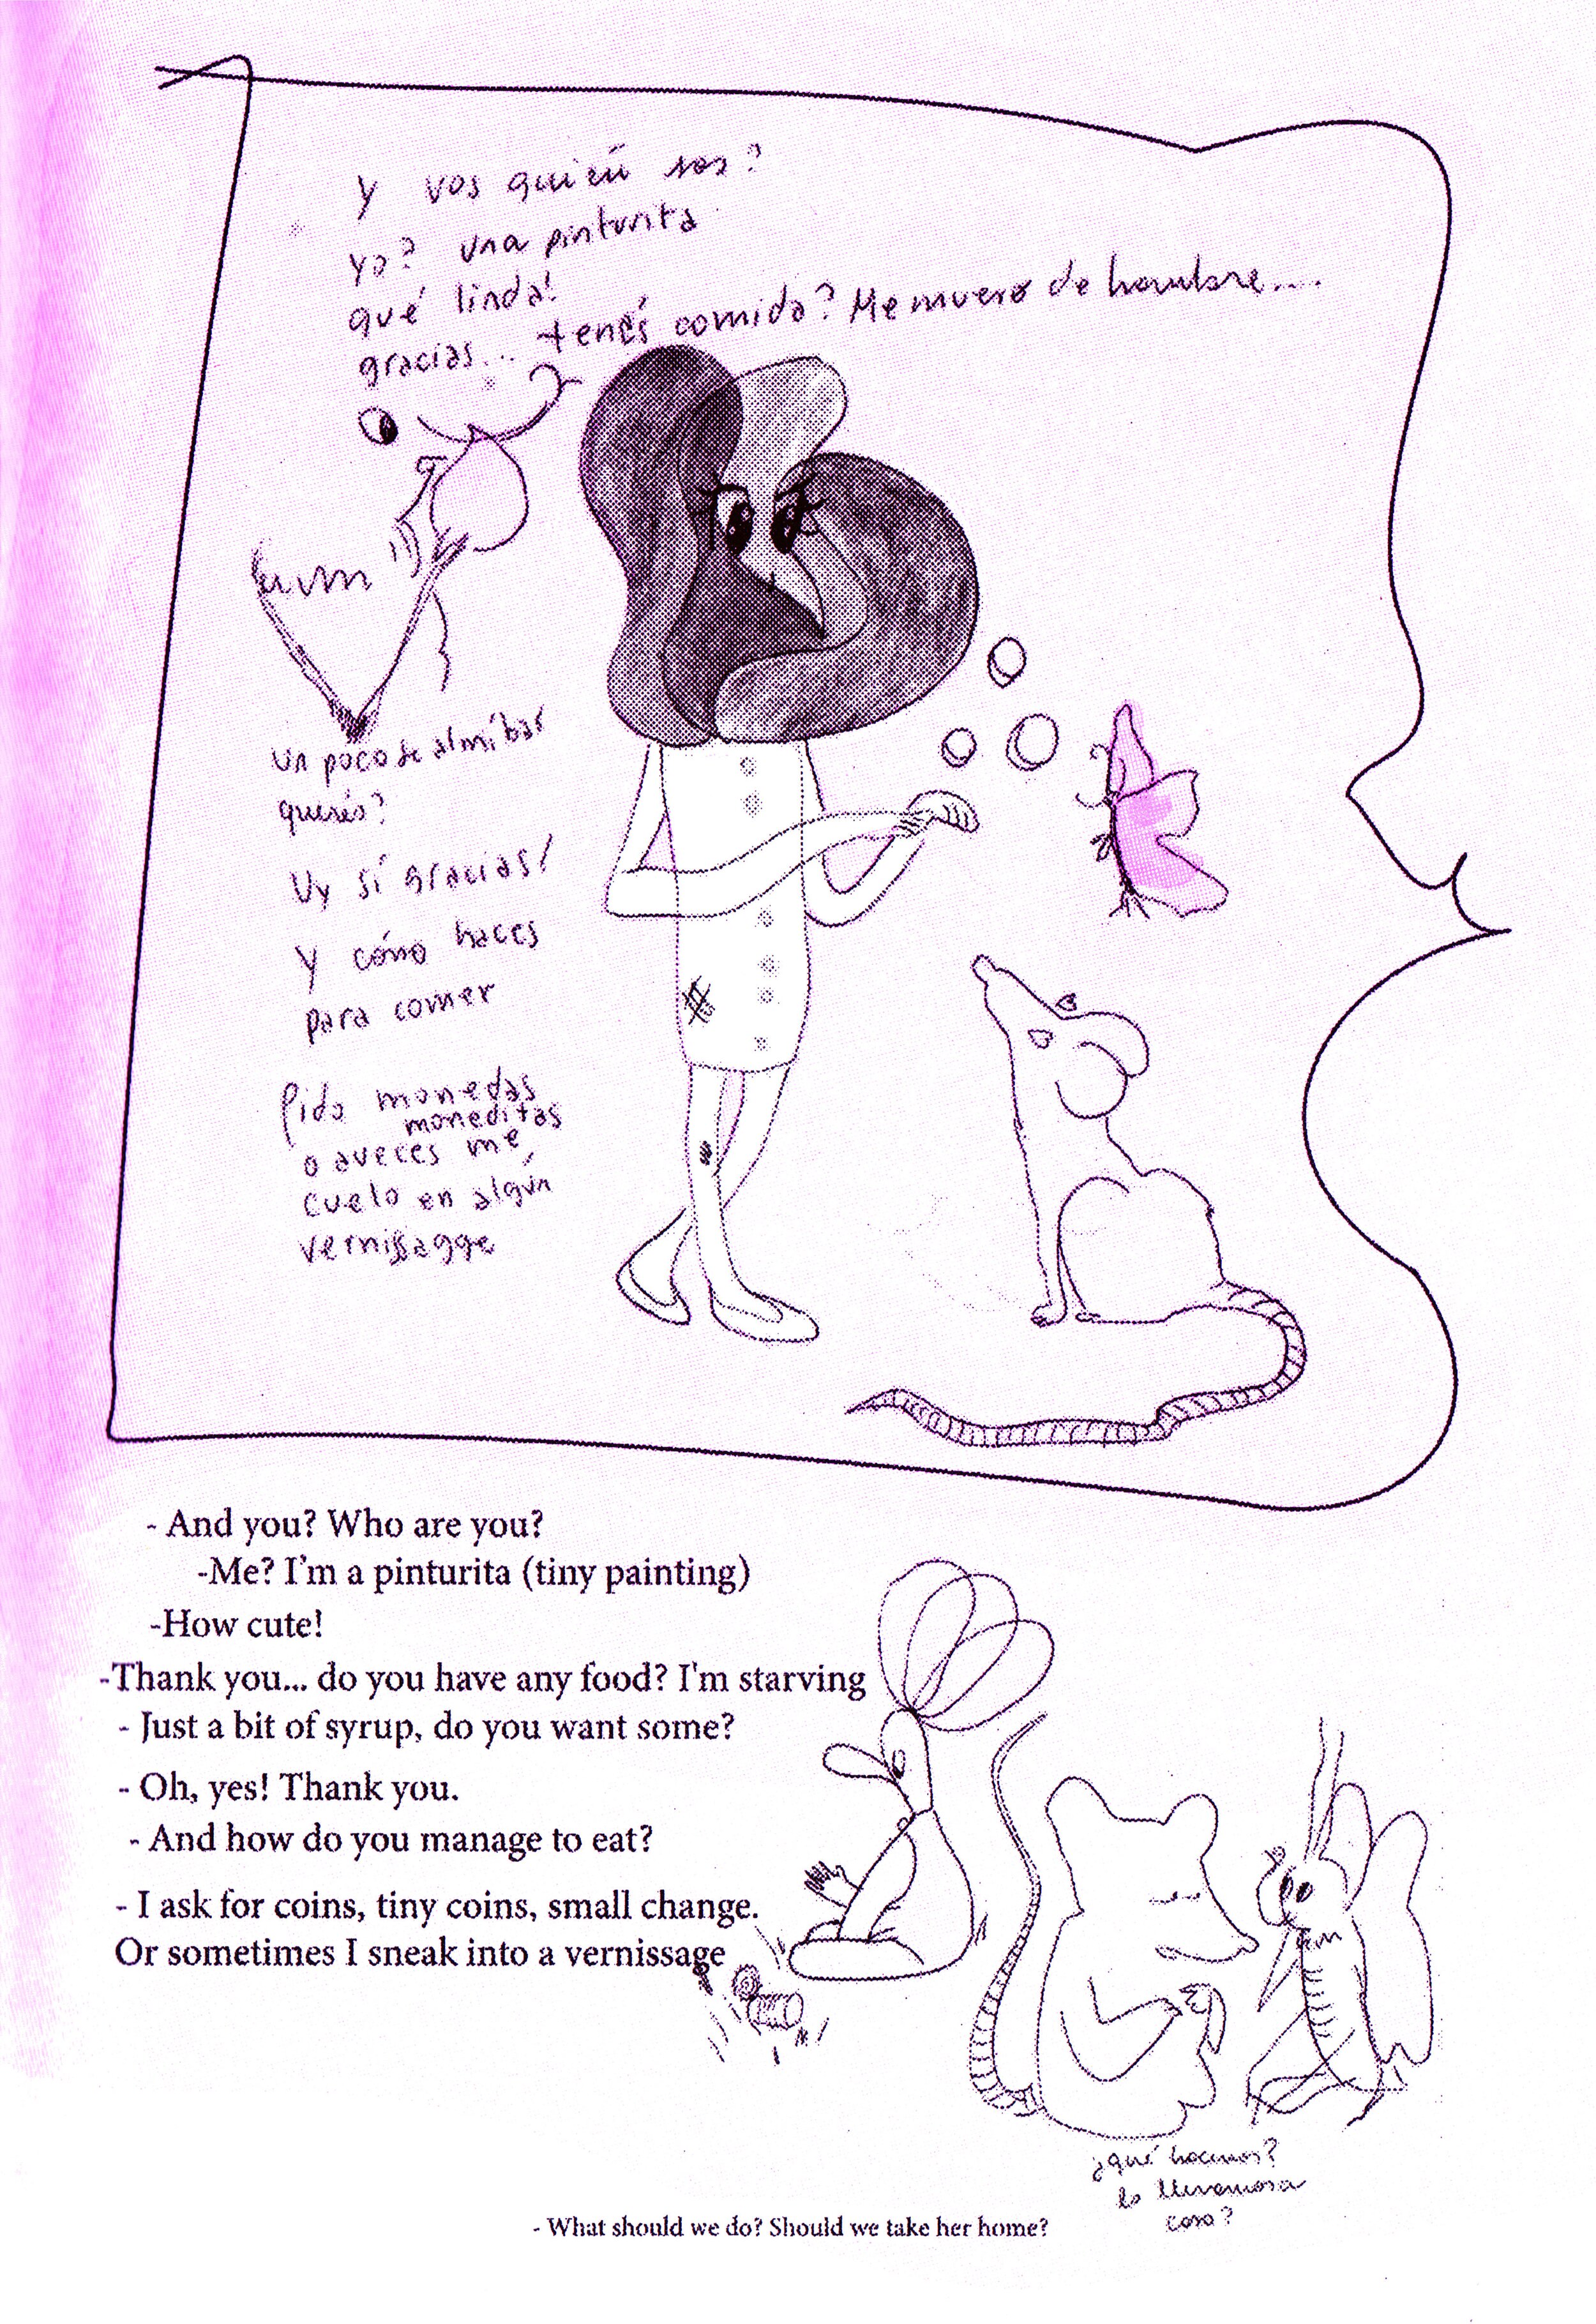 Y vos quién sos?
yo? una pinturita
qué linda!
gracias... tenés comida? Me muero de hambre....
Un poco de almíbar
querés?
Uy sí gracias!
Y cómo haces
para comer
Pido monedas
moneditas
o aveces me
cuelo en algún
vernissagge
- And you? Who are you?
-Me? I'm a pinturita (tiny painting)
-How cute!
-Thank you... do you have any food? I'm starving
- Just a bit of syrup, do you want some?
- Oh, yes! Thank you.
- And how do you manage to eat?
- I ask for coins, tiny coins, small change.
Or sometimes I sneak into a vernissage
¿qué hacemos?
la llevamos a
casa?
- What should we do? Should we take her home?